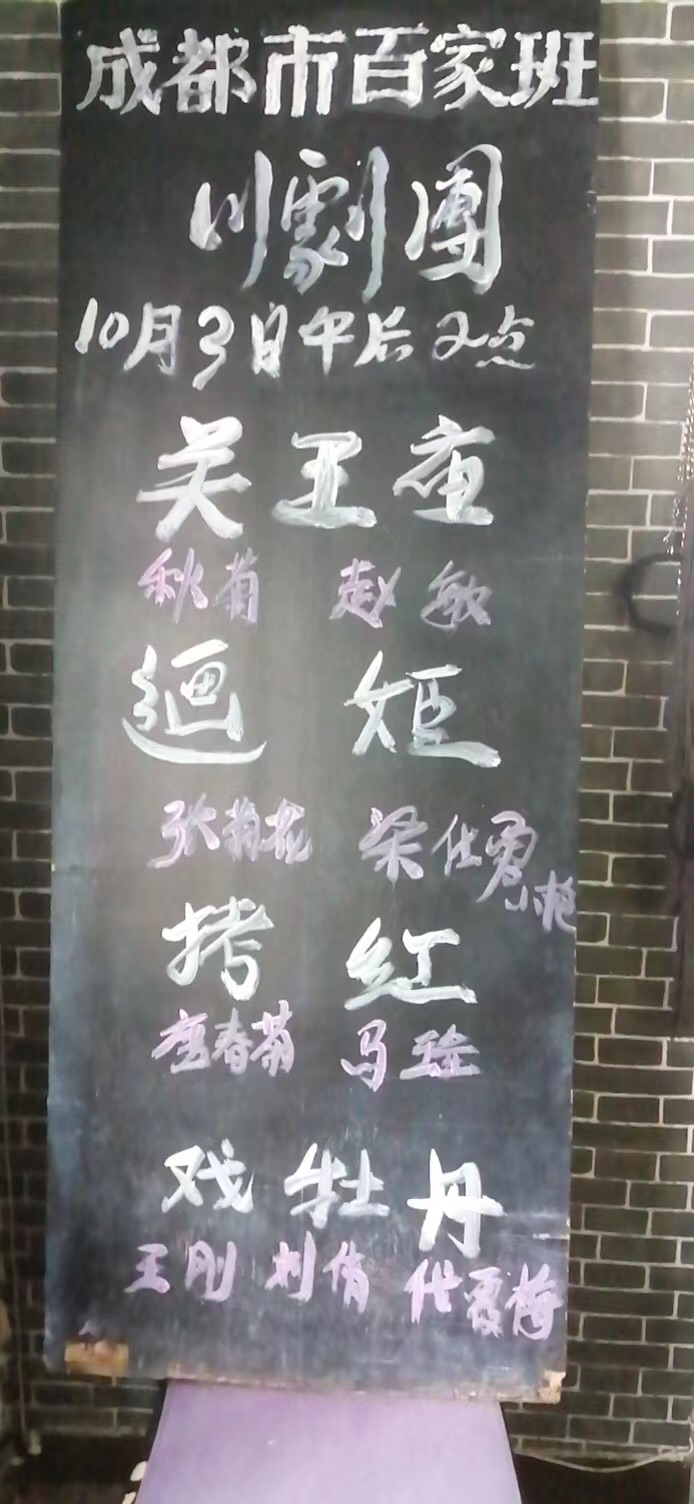 成都市百家班
川劇團
10月3日午后2点
关王庙
秋菊 赵敏
逥 姬
张菊花 梁仕勇
小艳
拷 红
唐春菊 马玲
戏牡丹
王刚 刘倩 代霞梅